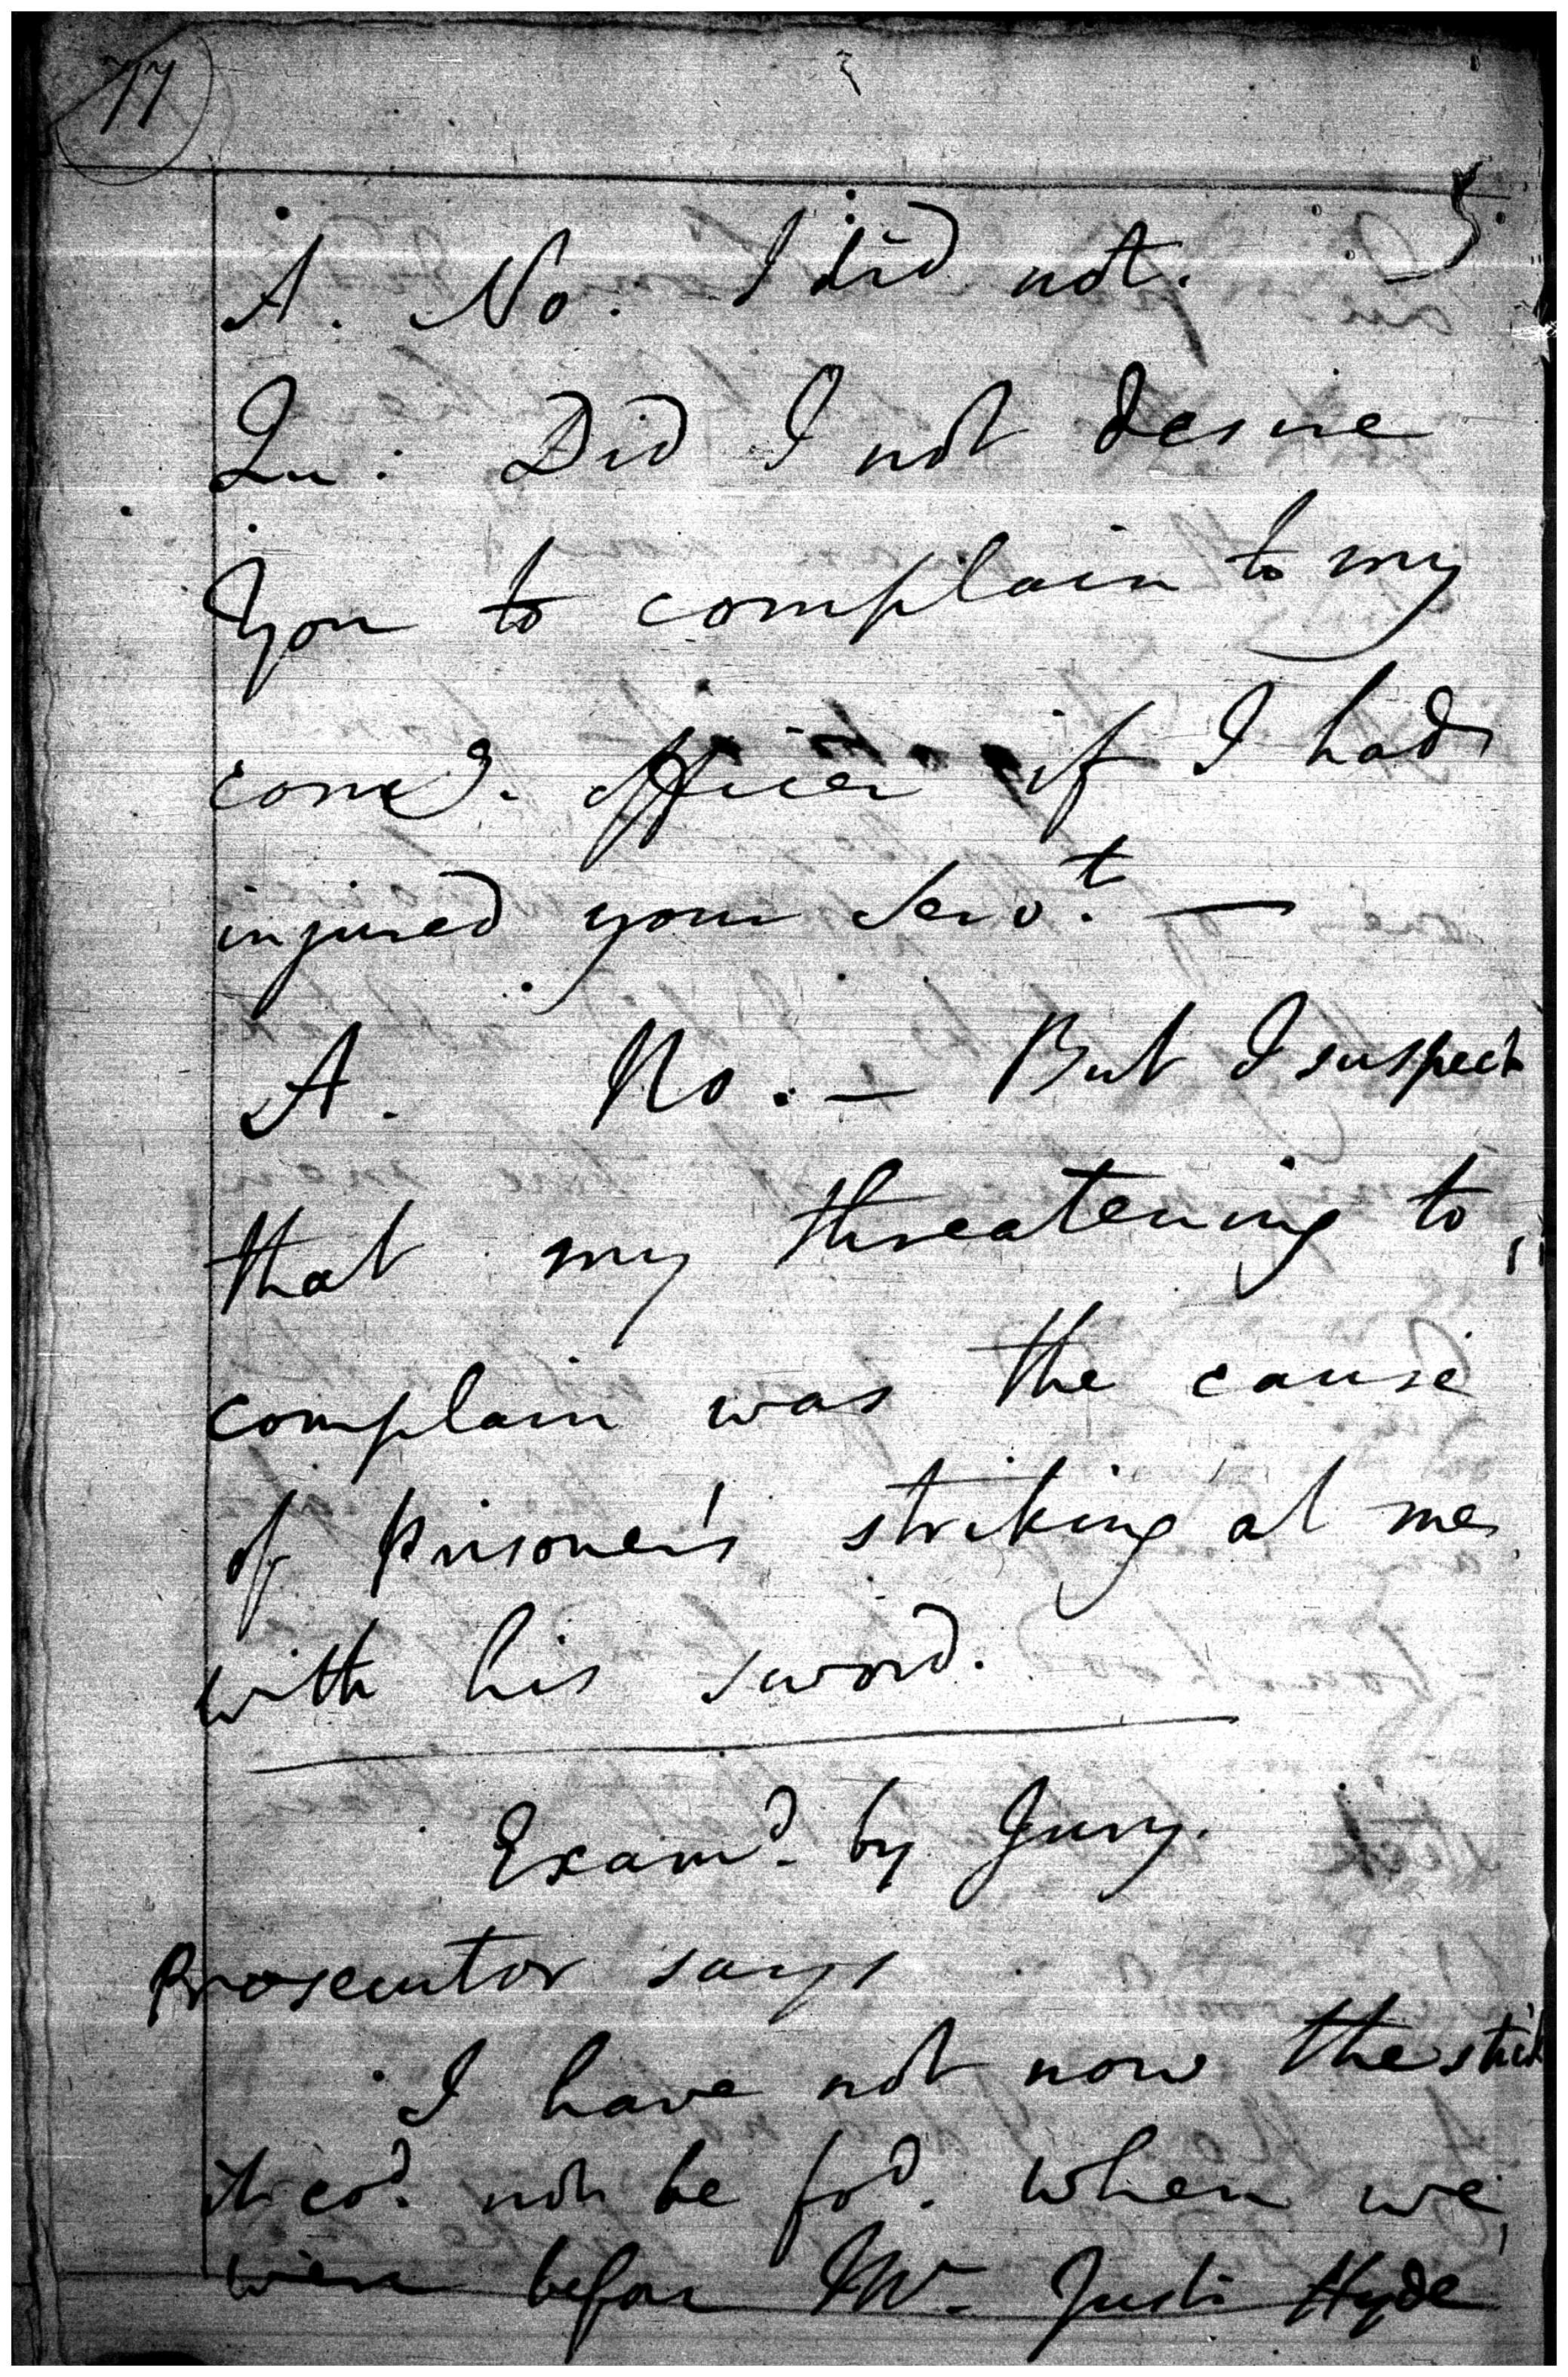 77
A. No. I did not.
Qu: Did I not desire
you to complain to my
comd. officer if I had
injured your Servt. —
A. No. — But I suspect
that my threatening to
complain was the cause
of Prisoner's striking at me
with his sword.
Examd. by Jury.
Prosecutor says
I have not now the stick
it cod. not be fod. when we
were before Mr. Justi Hyde